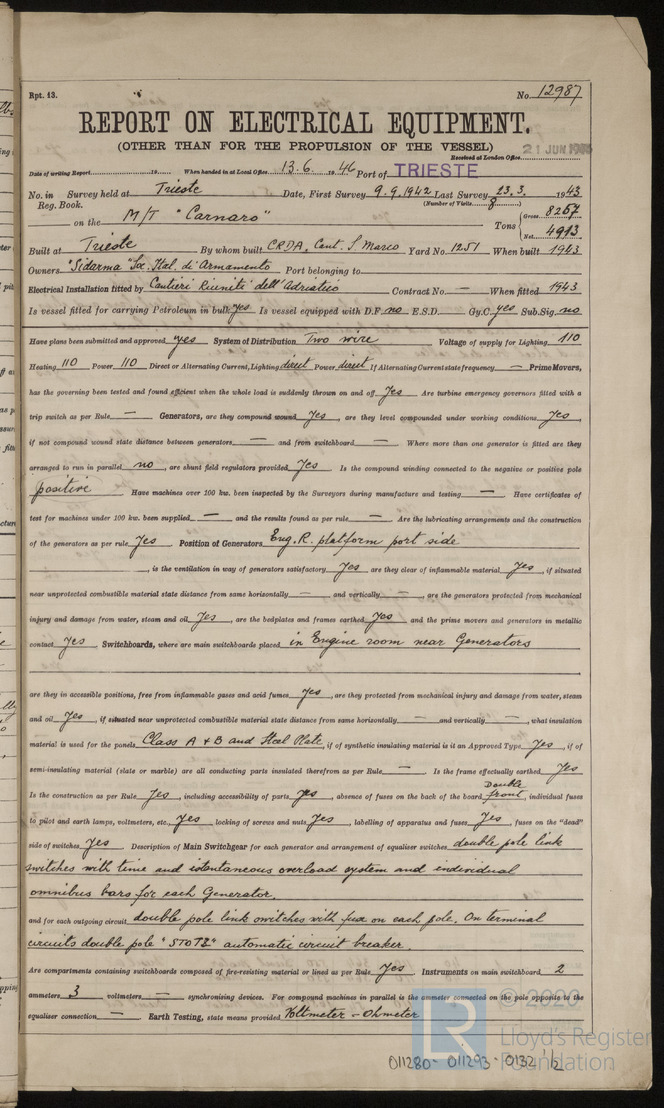 Rpt. 13.
No. 12987
REPORT ON ELECTRICAL EQUIPMENT.
(OTHER THAN FOR THE PROPULSION OF THE VESSEL)
21 JUN 1946
Received at London Office
Date of writing Report 19 When handed in at Local Office 13.6. 1946 Port of TRIESTE
No. in Survey held at Trieste Date, First Survey 9.9.1942 Last Survey 23.3. 1943
Reg. Book. (Number of Visits 8
on the M/T "Carnaro" Tons { Gross 8257
Net 4913
Built at Trieste By whom built CRDA, Cant. S. Marco Yard No. 1251 When built 1943
Owners "Sidarma" Soc. Ital. di Armamento Port belonging to
Electrical Installation fitted by Cantieri Riuniti dell'Adriatico Contract No. — When fitted 1943
Is vessel fitted for carrying Petroleum in bulk yes Is vessel equipped with D.F. no E.S.D. Gy.C. yes Sub.Sig. no
Have plans been submitted and approved yes System of Distribution Two wire Voltage of supply for Lighting 110
Heating 110 Power 110 Direct or Alternating Current, Lighting direct Power direct If Alternating Current state frequency — Prime Movers,
has the governing been tested and found efficient when the whole load is suddenly thrown on and off Yes Are turbine emergency governors fitted with a
trip switch as per Rule — Generators, are they compound wound Yes, are they level compounded under working conditions Yes,
if not compound wound state distance between generators — and from switchboard — Where more than one generator is fitted are they
arranged to run in parallel no, are shunt field regulators provided Yes Is the compound winding connected to the negative or positive pole
positive Have machines over 100 kw. been inspected by the Surveyors during manufacture and testing — Have certificates of
test for machines under 100 kw. been supplied — and the results found as per rule — Are the lubricating arrangements and the construction
of the generators as per rule Yes Position of Generators Eng. R. platform port side
, is the ventilation in way of generators satisfactory Yes are they clear of inflammable material Yes, if situated
near unprotected combustible material state distance from same horizontally — and vertically —, are the generators protected from mechanical
injury and damage from water, steam and oil Yes, are the bedplates and frames earthed Yes and the prime movers and generators in metallic
contact Yes Switchboards, where are main switchboards placed in Engine room near Generators
are they in accessible positions, free from inflammable gases and acid fumes Yes, are they protected from mechanical injury and damage from water, steam
and oil Yes, if situated near unprotected combustible material state distance from same horizontally — and vertically —, what insulation
material is used for the panels Class A + B and Steel Plate, if of synthetic insulating material is it an Approved Type Yes, if of
semi-insulating material (slate or marble) are all conducting parts insulated therefrom as per Rule — Is the frame effectually earthed Yes
Is the construction as per Rule Yes, including accessibility of parts Yes, absence of fuses on the back of the board Double front, individual fuses
to pilot and earth lamps, voltmeters, etc. Yes locking of screws and nuts Yes, labelling of apparatus and fuses Yes, fuses on the "dead"
side of switches Yes Description of Main Switchgear for each generator and arrangement of equaliser switches double pole link
switches with time and istantaneous overload system and individual
omnibus bars for each Generator.
and for each outgoing circuit double pole link switches with fuse on each pole. On terminal
circuits double pole "STOTZ" automatic circuit breaker.
Are compartments containing switchboards composed of fire-resisting material or lined as per Rule Yes Instruments on main switchboard 2
ammeters 3 voltmeters — synchronising devices. For compound machines in parallel is the ammeter connected on the pole opposite to the
equaliser connection — Earth Testing, state means provided Voltmeter - Ohmeter
© 2020
LR
Lloyd's Register
Foundation
011280-011293-0132 1/2